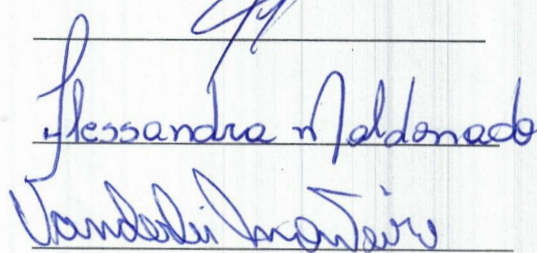 Alessandra Maldonado
Vanderlei Monteiro